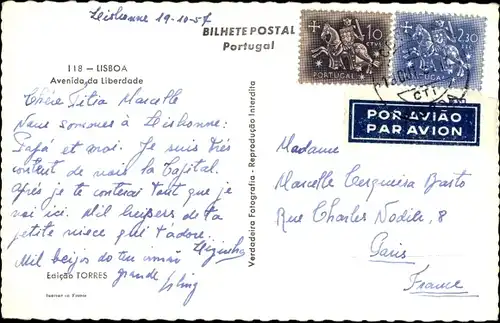 Lisbonne 19-10-57
BILHETE POSTAL
Portugal
118 — LISBOA
Avenida da Liberdade
Chère Titia Marcelle
Nous sommes à Lisbonne:
Papá et moi. Je suis très
content de voir la Capital.
Après je te conterai tout que je
voi ici. Mil de ta
petite niece qui t'adore.
Mil beijos do teu irmão
grande
Edição TORRES
Verdadeira Fotografia - Reprodução Interdita
10
CTVS
PORTUGAL
2$30
PORTUGAL
CTT
POR AVIÃO
PAR AVION
Madame
Marcelle Cerqueira Basto
Rue Charles Nodier, 8
Paris
France